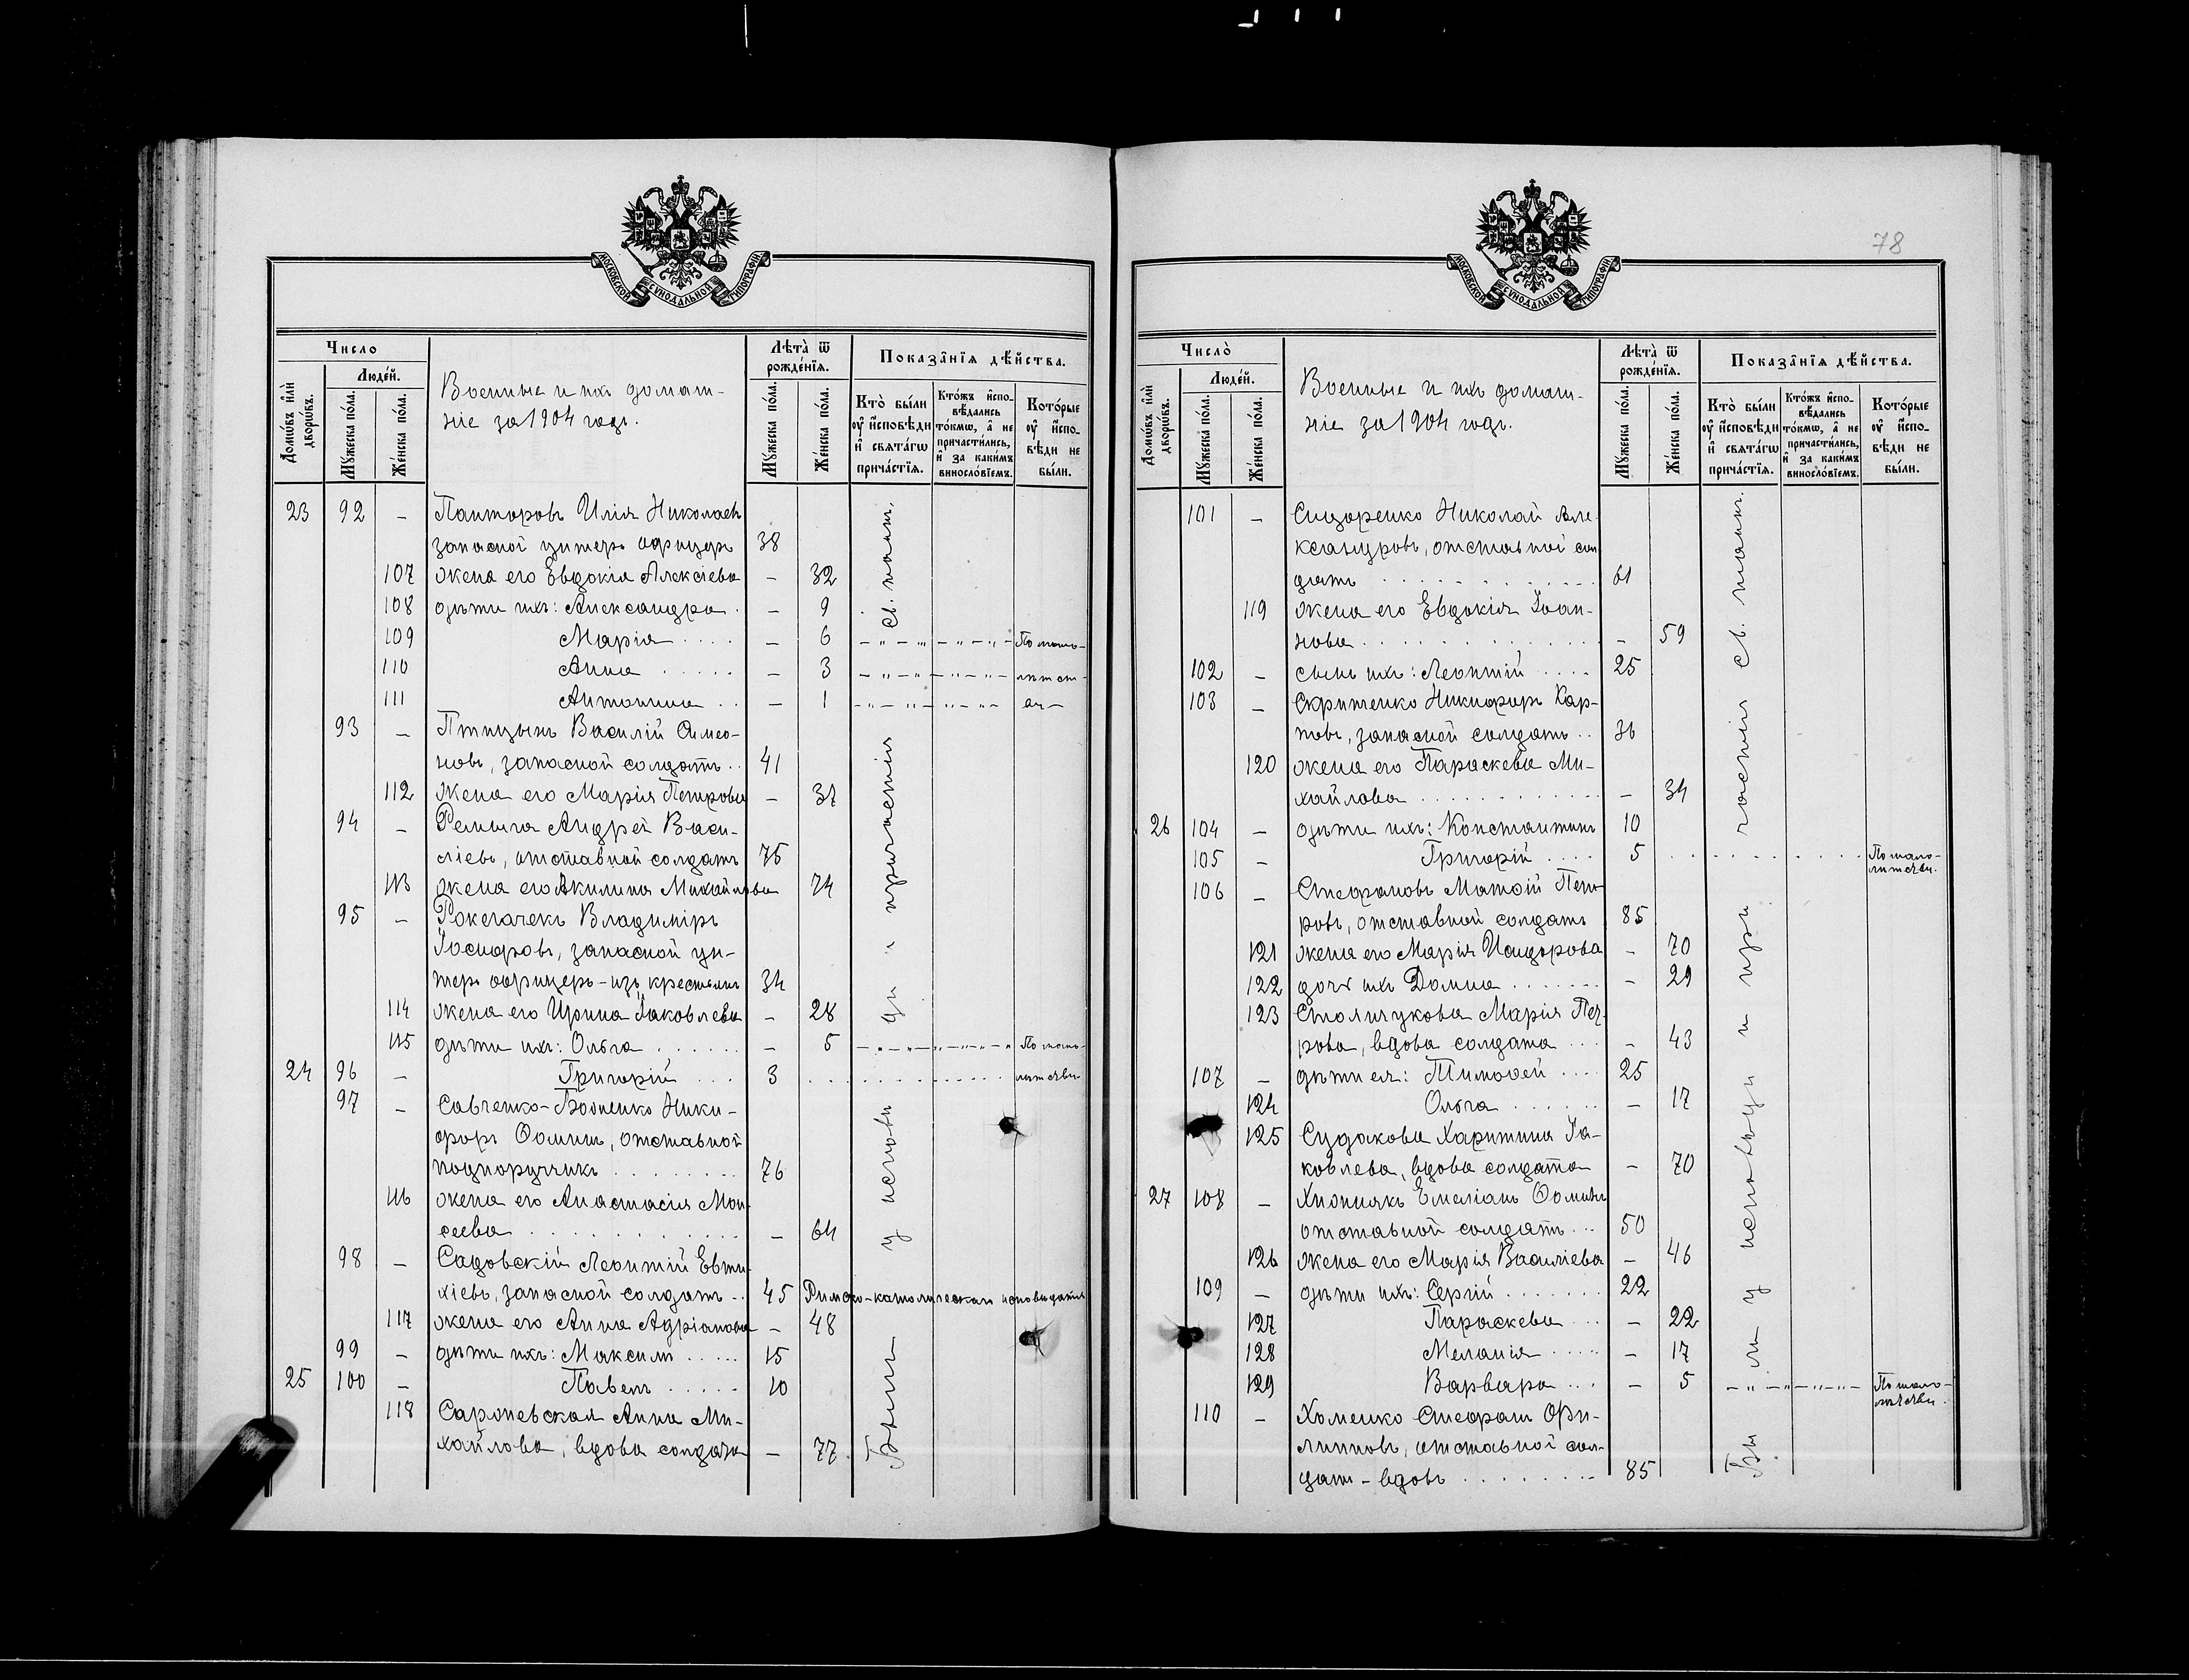 МОСКОВСКОЙ СѴНОДАЛЬНОЙ ТИПОГРАФІИ
Число
Людей.
Домѡвъ или дворѡвъ.
Мужеска пола.
Женска пола.
Военные и ихъ домаш-
ніе за 1904 годъ.
Лѣта ѿ рожденїѧ.
Мужеска пола.
Женска пола.
Показанїѧ дѣйства.
Кто были оу исповѣди и свѧтагѡ причастїѧ.
Ктожъ исповѣдались токмѡ, а не причастились, и за какимъ винословїемъ.
Которые оу исповѣди не были.
23 92 – Панторовъ Илія Николаевъ
запасной унтеръ офицеръ 38
107 жена его Евдокія Алексіева – 32
108 дѣти ихъ: Александра . – 9
109 Марія . . . . – 6 По мало-
110 Анна . . . . . – 3 лѣтст-
111 Антонина . . – 1 ву
93 – Птицынъ Василій Симео-
новъ, запасной солдатъ . . 41
112 жена его Марія Петрова – 37
94 – Андрей Васи-
ліевъ, отставной солдатъ 75
113 жена его Акилина Михайлова 74
95 – Рокегачекъ Владиміръ
Іосифовъ, запасной ун-
теръ офицеръ – изъ крестьянъ 34
114 жена его Ирина Іаковлева – 28
115 дѣти ихъ: Ольга . . . . . . – 5 По мало-
24 96 – Григорій . . . 3 лѣтству
97 – Савченко-Бойненко Ники-
форъ Ѳоминъ, отставной
подпоручикъ . . . . . . . . 76
116 жена его Анастасія Мои-
сеева . . . . . . . . . . . . – 64
98 – Садовскій Леонтій Евти-
хіевъ, запасной солдатъ . . 45 Римско-католическаго исповѣданія
117 жена его Анна Адріанова – 48
99 – дѣти ихъ: Максимъ . . . . . 15
25 100 – Павелъ . . . . . 10
118 Сарневская Анна Ми-
хайлова, вдова солдата – 77
Были у исповѣди и причастія св. таинъ.
78
МОСКОВСКОЙ СѴНОДАЛЬНОЙ ТИПОГРАФІИ
Число
Людей.
Домѡвъ или дворѡвъ.
Мужеска пола.
Женска пола.
Военные и ихъ домаш-
ніе за 1904 годъ.
Лѣта ѿ рожденїѧ.
Мужеска пола.
Женска пола.
Показанїѧ дѣйства.
Кто были оу исповѣди и свѧтагѡ причастїѧ.
Ктожъ исповѣдались токмѡ, а не причастились, и за какимъ винословїемъ.
Которые оу исповѣди не были.
101 – Сидоренко Николай Але-
ксандровъ, отставной сол-
датъ . . . . . . . . . . . . . 61
119 жена его Евдокія Іоан-
нова . . . . . . . . . . . . . – 59
102 – сынъ ихъ: Леонтій . . . . 25
103 – Скрипенко Никифоръ Кар-
повъ, запасной солдатъ . . 36
120 жена его Параскева Ми-
хайлова . . . . . . . . . . – 34
26 104 – дѣти ихъ: Константинъ 10
105 – Григорій . . . . 5 По мало-
лѣтству.
106 – Стефановъ Матѳій Пет-
ровъ, отставной солдатъ 85
121 жена его Марія Исидорова – 70
122 дочь ихъ Домна . . . . . . . – 29
123 Столичукова Марія Пет-
рова, вдова солдата . . . – 43
107 – дѣти ея: Тимоѳей . . . . 25
124 Ольга . . . . . . – 17
125 Судакова Харитина Іа-
ковлева, вдова солдата – 70
27 108 – Хиопнякъ Емеліанъ Ѳоминъ
отставной солдатъ . . . 50
126 жена его Марія Василіева – 46
109 – дѣти ихъ: Сергій . . . . . . . 22
127 Параскева . . . – 22
128 Меланія . . . . . – 17
129 Варвара . . . – 5 По мало-
лѣтству.
110 – Хоменко Стефанъ Фи-
липповъ, отставной сол-
датъ – вдовъ . . . . . . . . 85
Были у исповѣди и причастія св. таинъ.